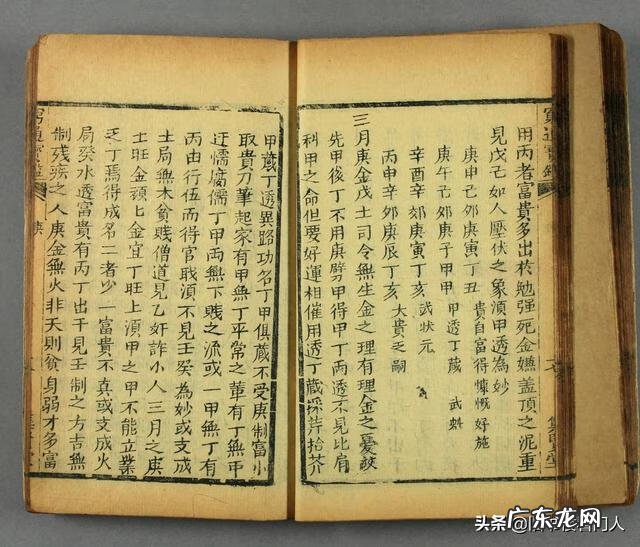 窮通寶鑑
用丙者富貴多出於勉强死金嫌蓋頂之泥重
見戊己如人壓伏之象須甲透為妙
庚申己卯庚寅丁丑 貴自富得慷慨好施
庚午己卯庚子甲申 甲透丁藏 武
辛酉辛卯庚寅丁亥 武狀元
丙申辛卯庚辰丁亥 大貴乏嗣
三月庚金戊土司令無生金之理有理金之憂
先甲後丁不用庚劈甲得甲丁兩透不見比肩
科甲之命但要好運相催用透丁藏採芹拾芥
甲藏丁透異路功名丁甲俱藏不受庚制富小
取貴刀筆起家有甲無丁平常之輩有丁無甲
迂儒腐儒丁甲兩無下賤之流或一甲無丁有
丙由行伍而得官職須不見壬癸為妙或支成
土局無木貧賤僧道見乙奸詐小人三月之庚
土旺金頑匕金宜丁旺土須甲之甲不能立業
乏丁焉得成名二者少一富貴不真或支成火
局癸水透富貴有丙丁出干見壬制之方吉無
制殘疾之人庚金無火非夭則貧身弱才多富
窮通寶鑑
庚
头条
广东龙网